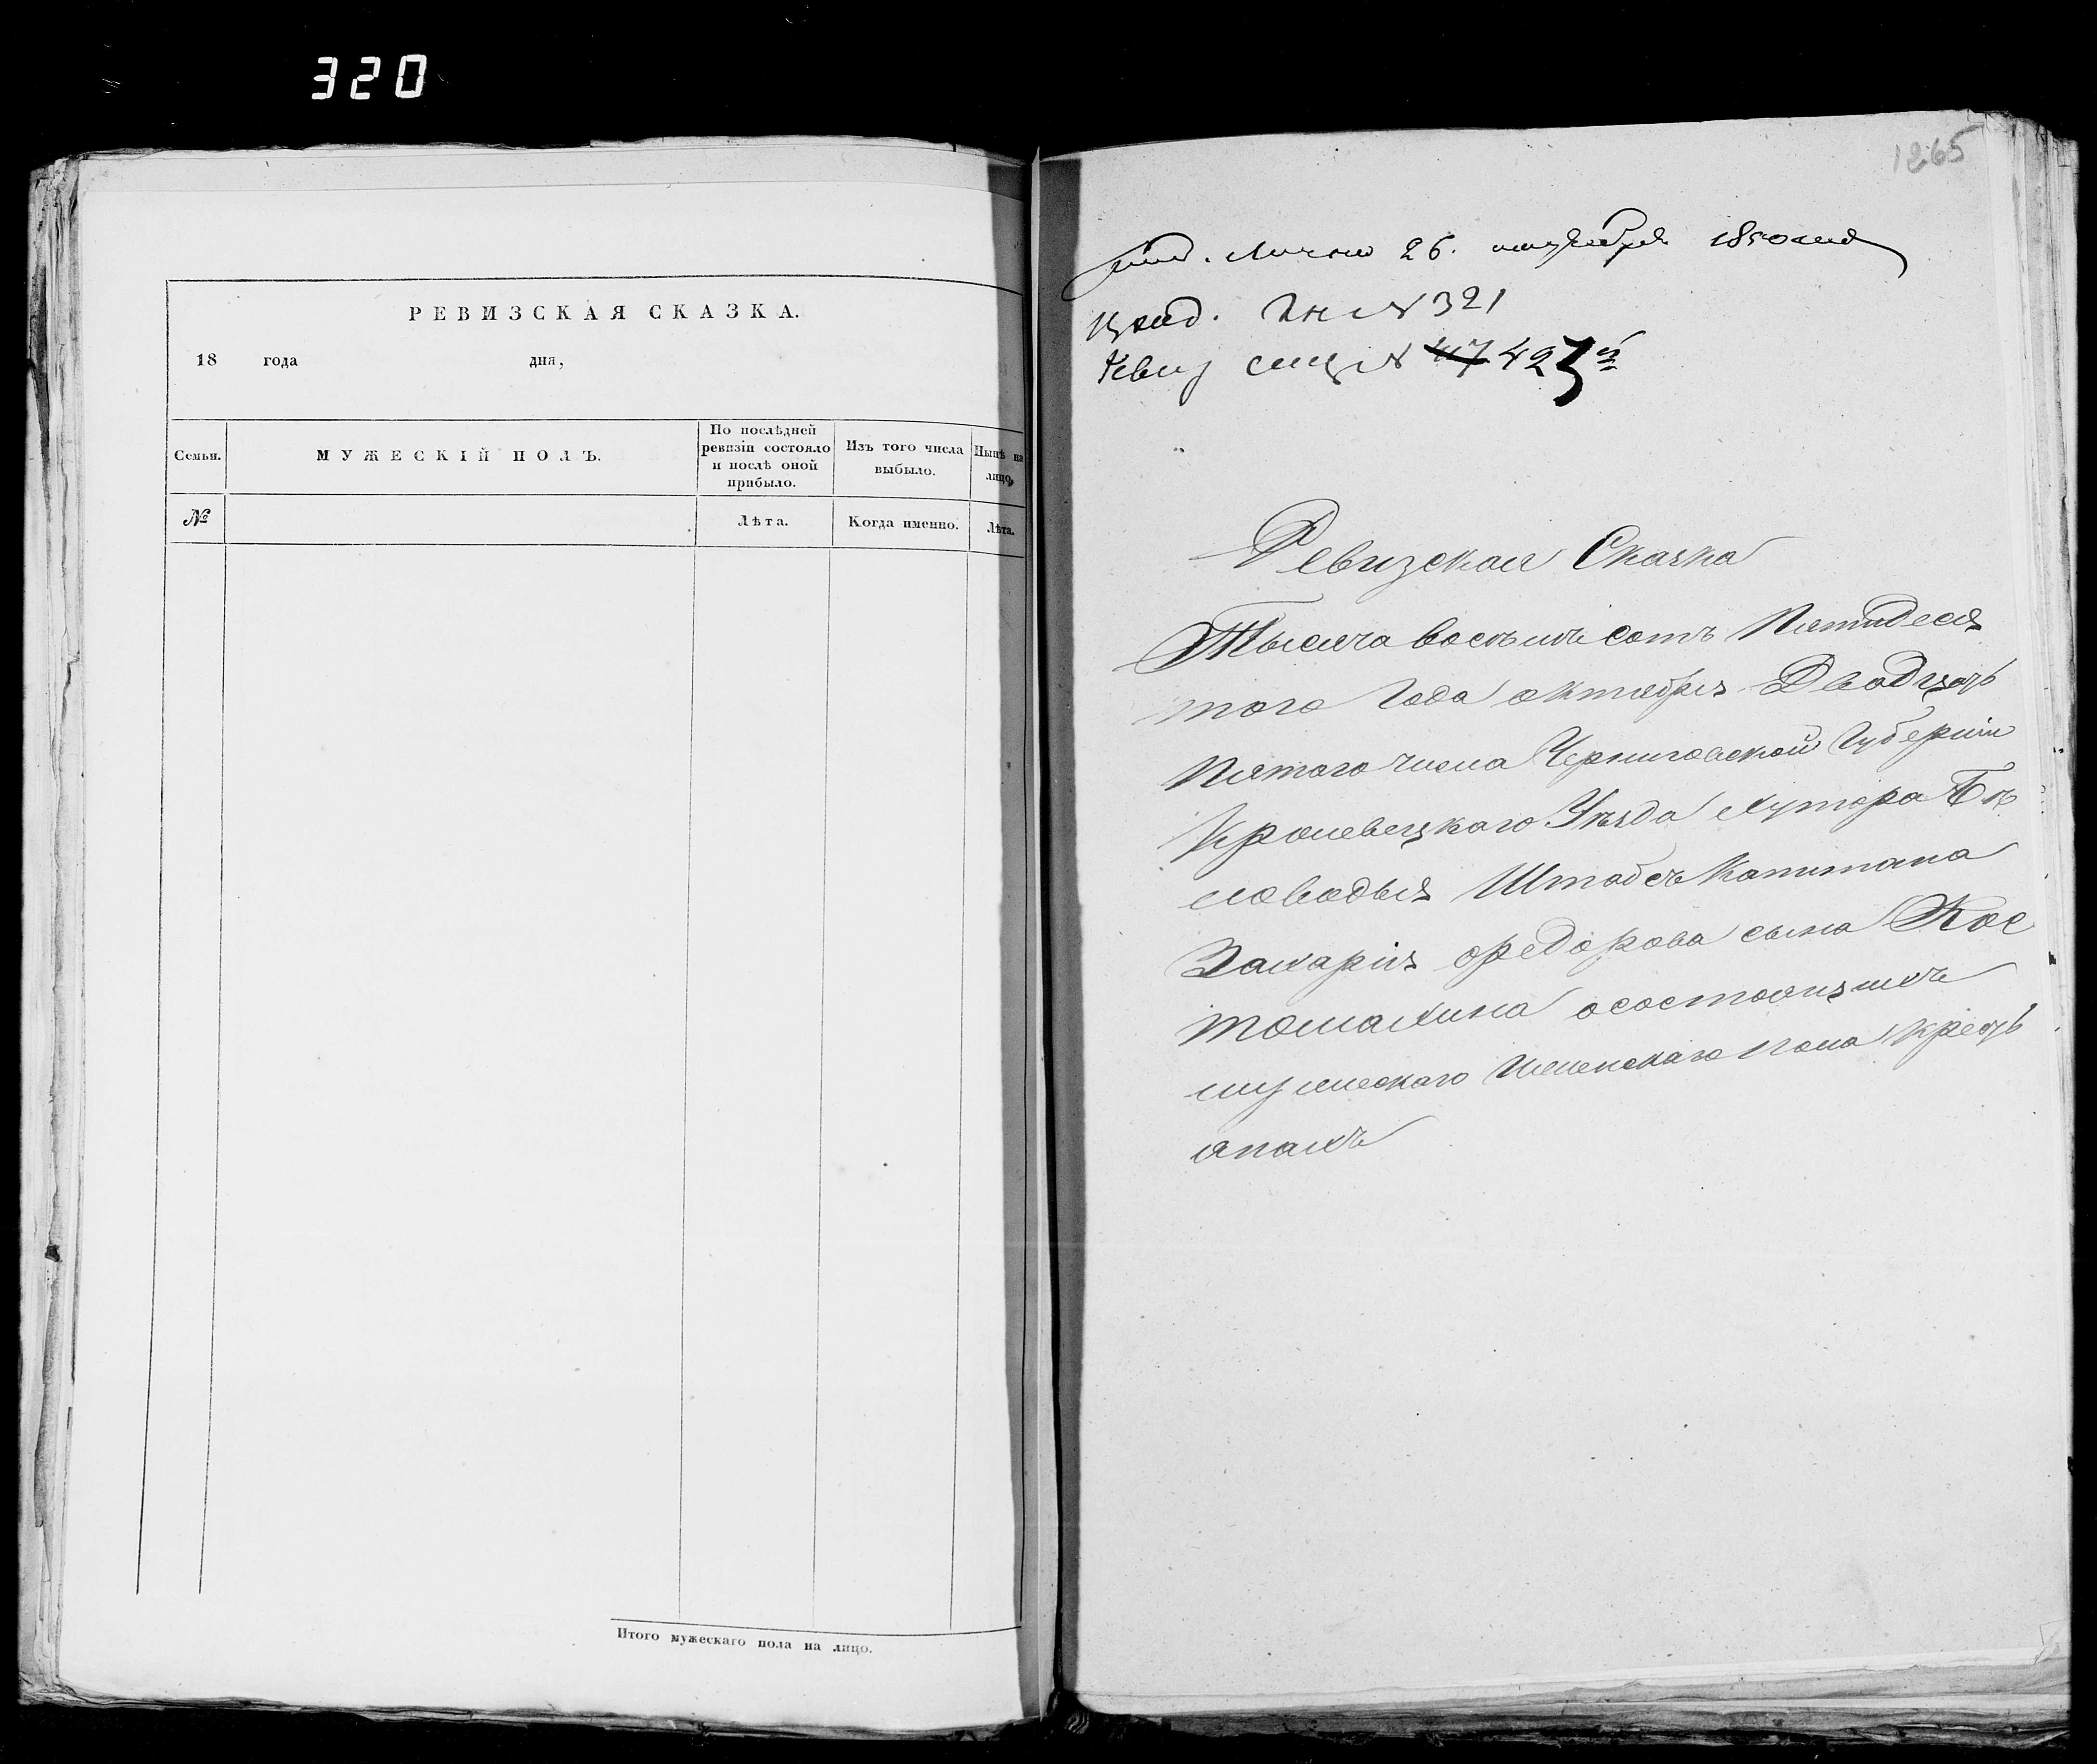 320
РЕВИЗСКАЯ СКАЗКА.
18 года дня,
Семьи.
МУЖЕСКІЙ ПОЛЪ.
По послѣдней ревизіи состояло и послѣ оной прибыло.
Изъ того числа выбыло.
Нынѣ на лицо,
№
Лѣта.
Когда именно.
Лѣта.
Итого мужескаго пола на лицо.
1265
26. октября 1850
№ 321
Ревиз № 417 423
Ревизская Сказка
Тысяча восъмъ сотъ Пятидеся
того Года октября Двадцать
Пятого числа Черниговской Губерніи
Кролевецкаго Уѣзда хутора Бѣ
ловодья Штабсъ Капитана
Захарія Федорова сына Кос
томахина осостоящихъ
мужескаго Женскаго пола крест
янахъ